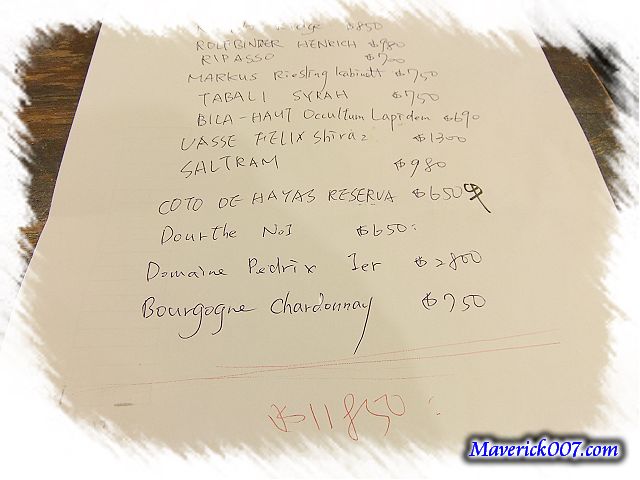 $850
ROLFBINDER HENRICH $980
RIPASSO $700
MARKUS Riesling kabinett $750
TABALI SYRAH $750
BILA-HAUT Occultum Lapidem $690
VASSE FELIX Shiraz $1300
SALTRAM $980
COTO DE HAYAS RESERVA $650
Dourthe No1 $650
Domaine Pedrix 1er $2800
Bourgogne Chardonnay $750
$11850
Maverick007.com